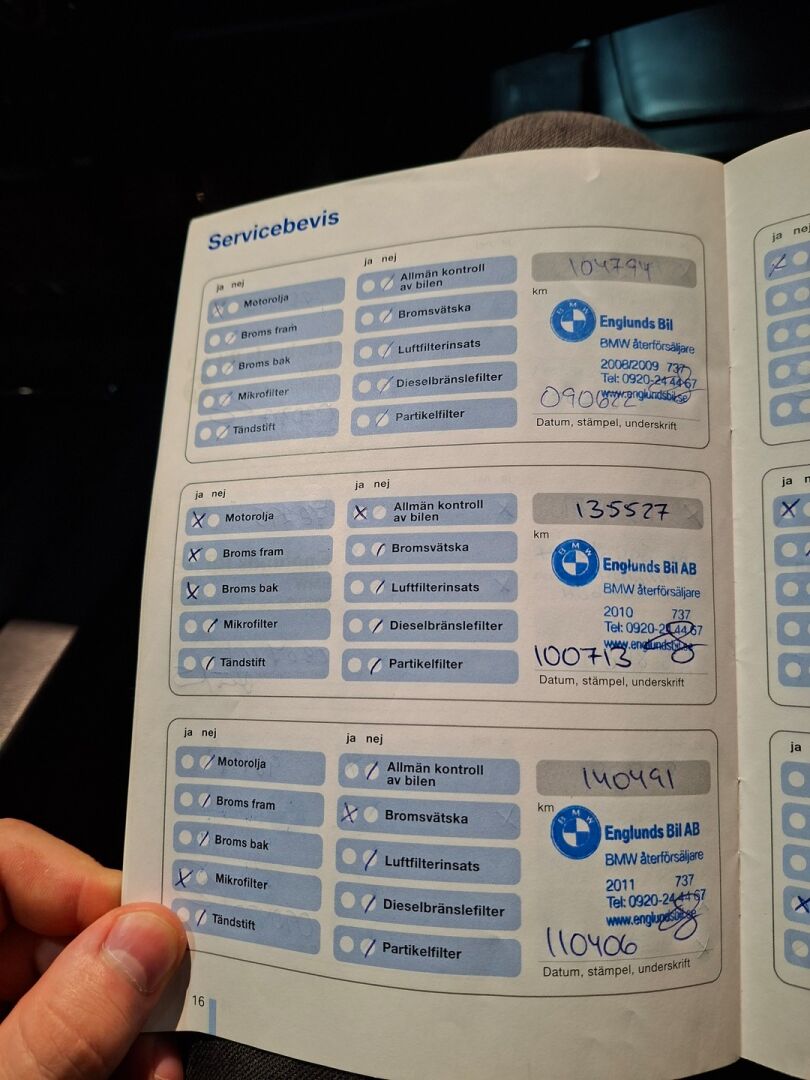 Servicebevis
ja nej
Motorolja
Broms fram
Broms bak
Mikrofilter
Tändstift
ja nej
Allmän kontroll
av bilen
Bromsvätska
Luftfilterinsats
Dieselbränslefilter
Partikelfilter
104794
km
BMW
Englunds Bil
BMW återförsäljare
2008/2009 737
Tel: 0920-24 44 67
www.englundsbil.se
090622
Datum, stämpel, underskrift
ja nej
X Motorolja
X Broms fram
X Broms bak
Mikrofilter
Tändstift
ja nej
X Allmän kontroll
av bilen
Bromsvätska
Luftfilterinsats
Dieselbränslefilter
Partikelfilter
135527
km
BMW
Englunds Bil AB
BMW återförsäljare
2010 737
Tel: 0920-24 44 67
www.englundsbil.se
100713
Datum, stämpel, underskrift
ja nej
Motorolja
Broms fram
Broms bak
X Mikrofilter
Tändstift
ja nej
Allmän kontroll
av bilen
X Bromsvätska
Luftfilterinsats
Dieselbränslefilter
Partikelfilter
140491
km
BMW
Englunds Bil AB
BMW återförsäljare
2011 737
Tel: 0920-24 44 67
www.englundsbil.se
110406
Datum, stämpel, underskrift
16
ja nej
X
ja
X
ja
X